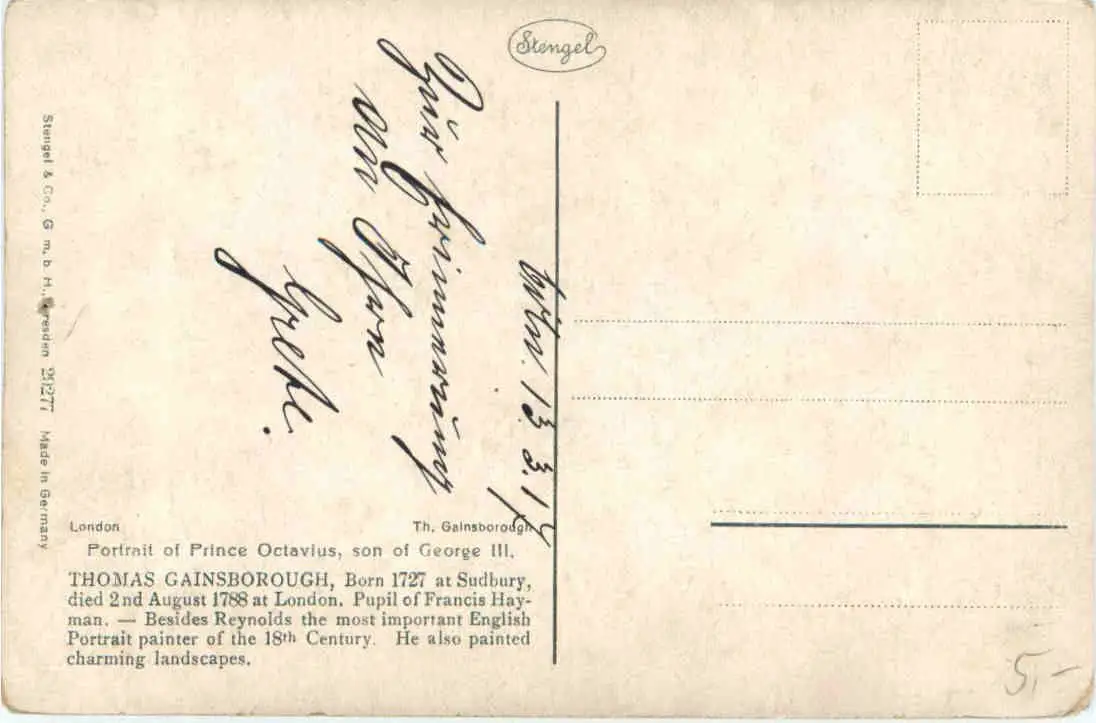 Stengel
13. 3. 14
Zur Erinnerung
Stengel & Co., G. m. b. H., Dresden 29277 Made in Germany
London Th. Gainsborough
Portrait of Prince Octavius, son of George III.
THOMAS GAINSBOROUGH, Born 1727 at Sudbury,
died 2nd August 1788 at London. Pupil of Francis Hay-
man. — Besides Reynolds the most important English
Portrait painter of the 18th Century. He also painted
charming landscapes.
5,-